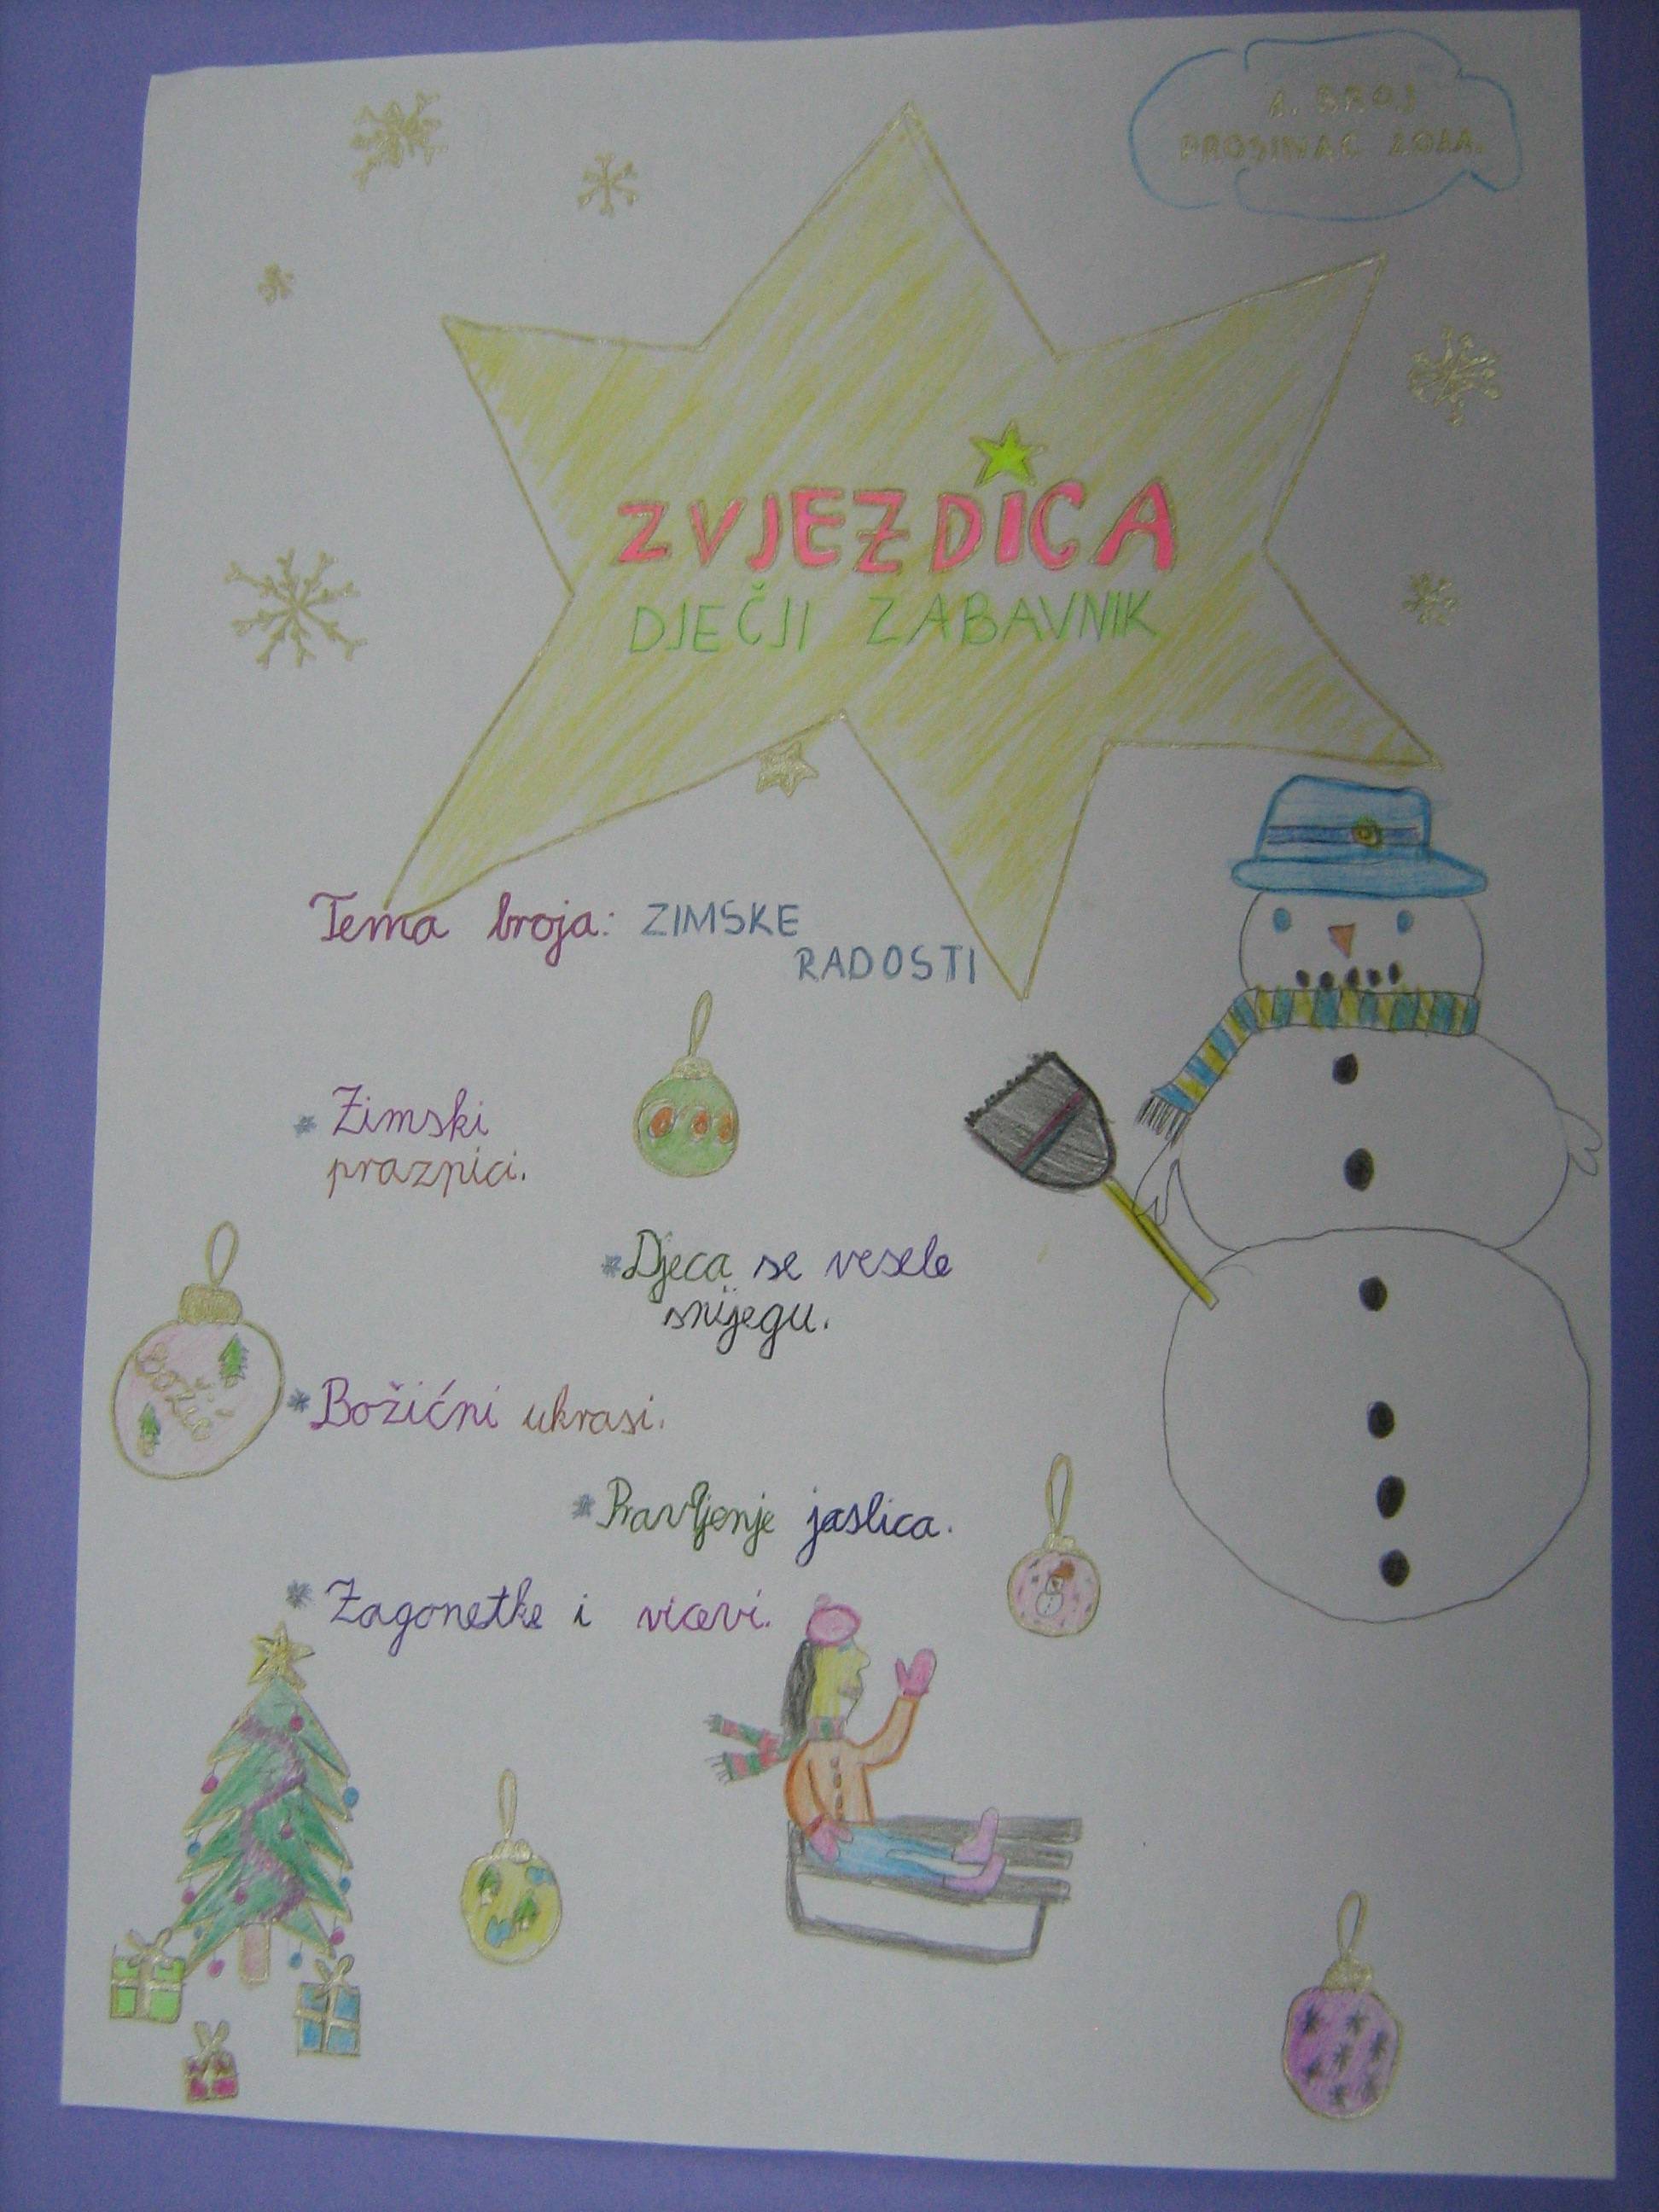 1. BROJ
PROSINAC 2011.
ZVJEZDICA
DJEČJI ZABAVNIK
Tema broja: ZIMSKE
RADOSTI
* Zimski
praznici.
* Djeca se vesele
snijegu.
Božić
* Božićni ukrasi.
* Pravljenje jaslica.
* Zagonetke i vicevi.